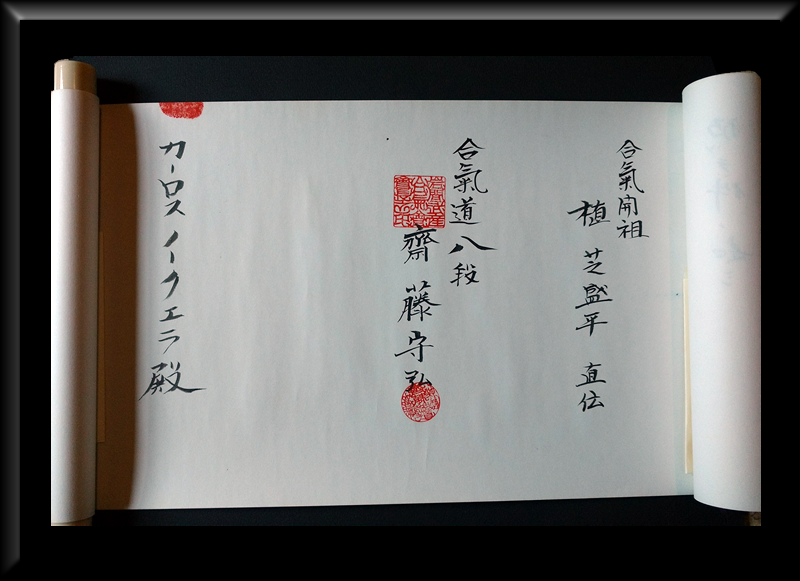 合氣開祖
植芝盛平 直伝
合氣道 八段
齋藤守弘
カーロス イークエラ 殿